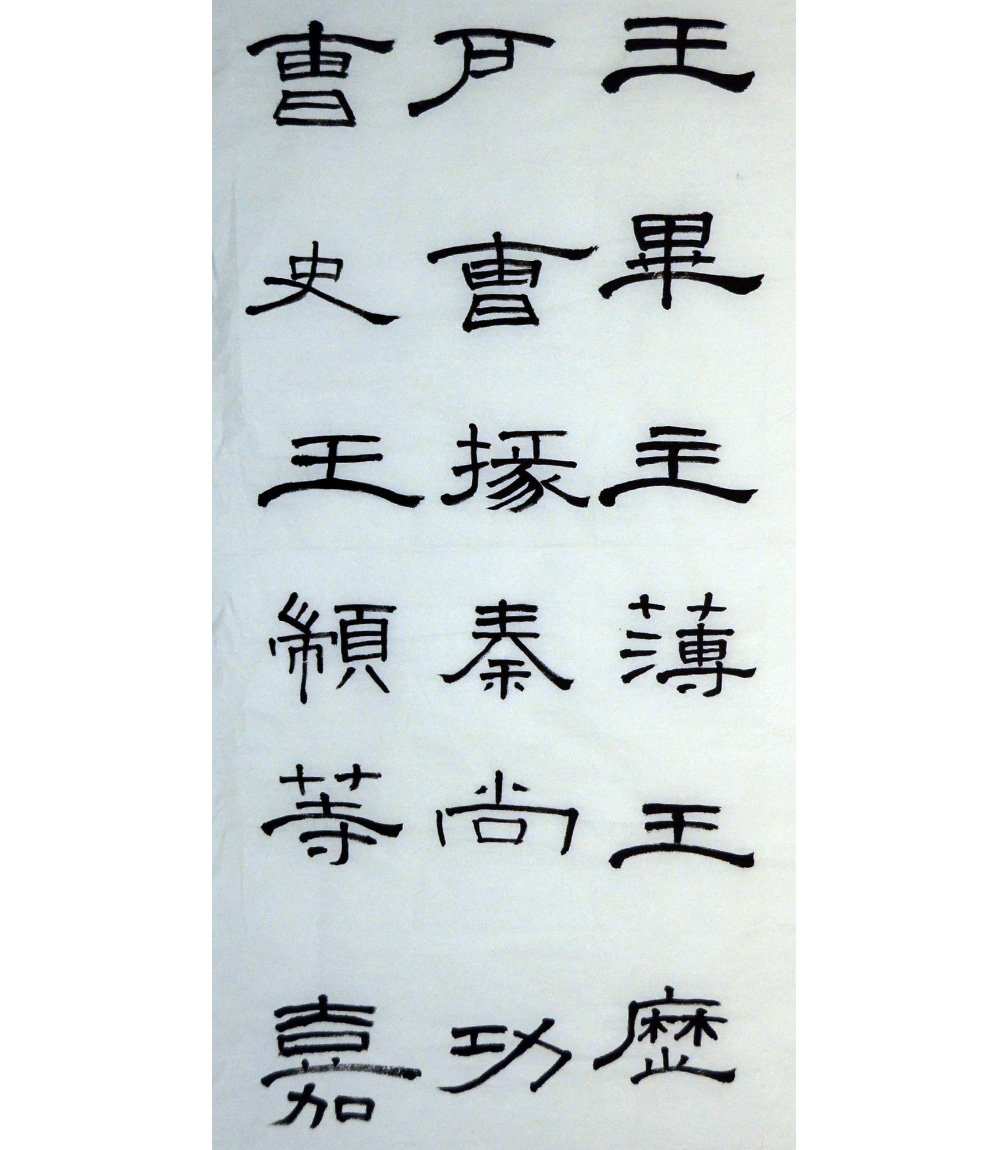 王畢主薄王歷
戶曹掾秦尚功
曹史王顓等嘉